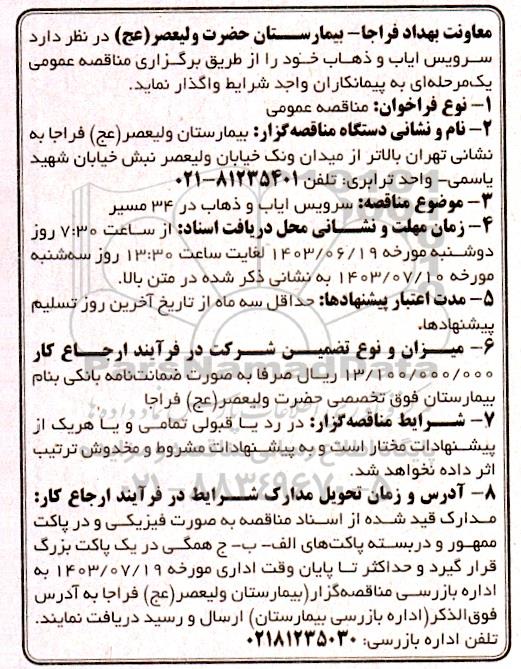 معاونت بهداد فراجا- بیمارستان حضرت ولیعصر(عج) در نظر دارد
سرویس ایاب و ذهاب خود را از طریق برگزاری مناقصه عمومی
یک‌مرحله‌ای به پیمانکاران واجد شرایط واگذار نماید.
۱- نوع فراخوان: مناقصه عمومی
۲- نام و نشانی دستگاه مناقصه‌گزار: بیمارستان ولیعصر(عج) فراجا به
نشانی تهران بالاتر از میدان ونک خیابان ولیعصر نبش خیابان شهید
یاسمی- واحد ترابری: تلفن ۸۱۲۳۵۴۰۱-۰۲۱
۳- موضوع مناقصه: سرویس ایاب و ذهاب در ۳۴ مسیر
۴- زمان مهلت و نشانی محل دریافت اسناد: از ساعت ۷:۳۰ روز
دوشنبه مورخه ۱۴۰۳/۰۶/۱۹ لغایت ساعت ۱۳:۳۰ روز سه‌شنبه
مورخه ۱۴۰۳/۰۷/۱۰ به نشانی ذکر شده در متن بالا.
۵- مدت اعتبار پیشنهادها: حداقل سه ماه از تاریخ آخرین روز تسلیم
پیشنهادها.
۶- میزان و نوع تضمین شرکت در فرآیند ارجاع کار
۱۳/۱۰۰/۰۰۰/۰۰۰ ریال صرفا به صورت ضمانت‌نامه بانکی بنام
بیمارستان فوق تخصصی حضرت ولیعصر(عج) فراجا
۷- شرایط مناقصه‌گزار: در رد یا قبولی تمامی و یا هریک از
پیشنهادات مختار است و به پیشنهادات مشروط و مخدوش ترتیب
اثر داده نخواهد شد.
۸- آدرس و زمان تحویل مدارک شرایط در فرآیند ارجاع کار:
مدارک قید شده از اسناد مناقصه به صورت فیزیکی و در پاکت
ممهور و دربسته پاکت‌های الف- ب- ج همگی در یک پاکت بزرگ
قرار گیرد و حداکثر تا پایان وقت اداری مورخه ۱۴۰۳/۰۷/۱۹ به
اداره بازرسی مناقصه‌گزار(بیمارستان ولیعصر(عج) فراجا به آدرس
فوق‌الذکر(اداره بازرسی بیمارستان) ارسال و رسید دریافت نمایند.
تلفن اداره بازرسی: ۰۲۱۸۱۲۳۵۰۳۰
ParsNamadData
۰۲۱-۸۸۳۴۹۶۷۰-۵